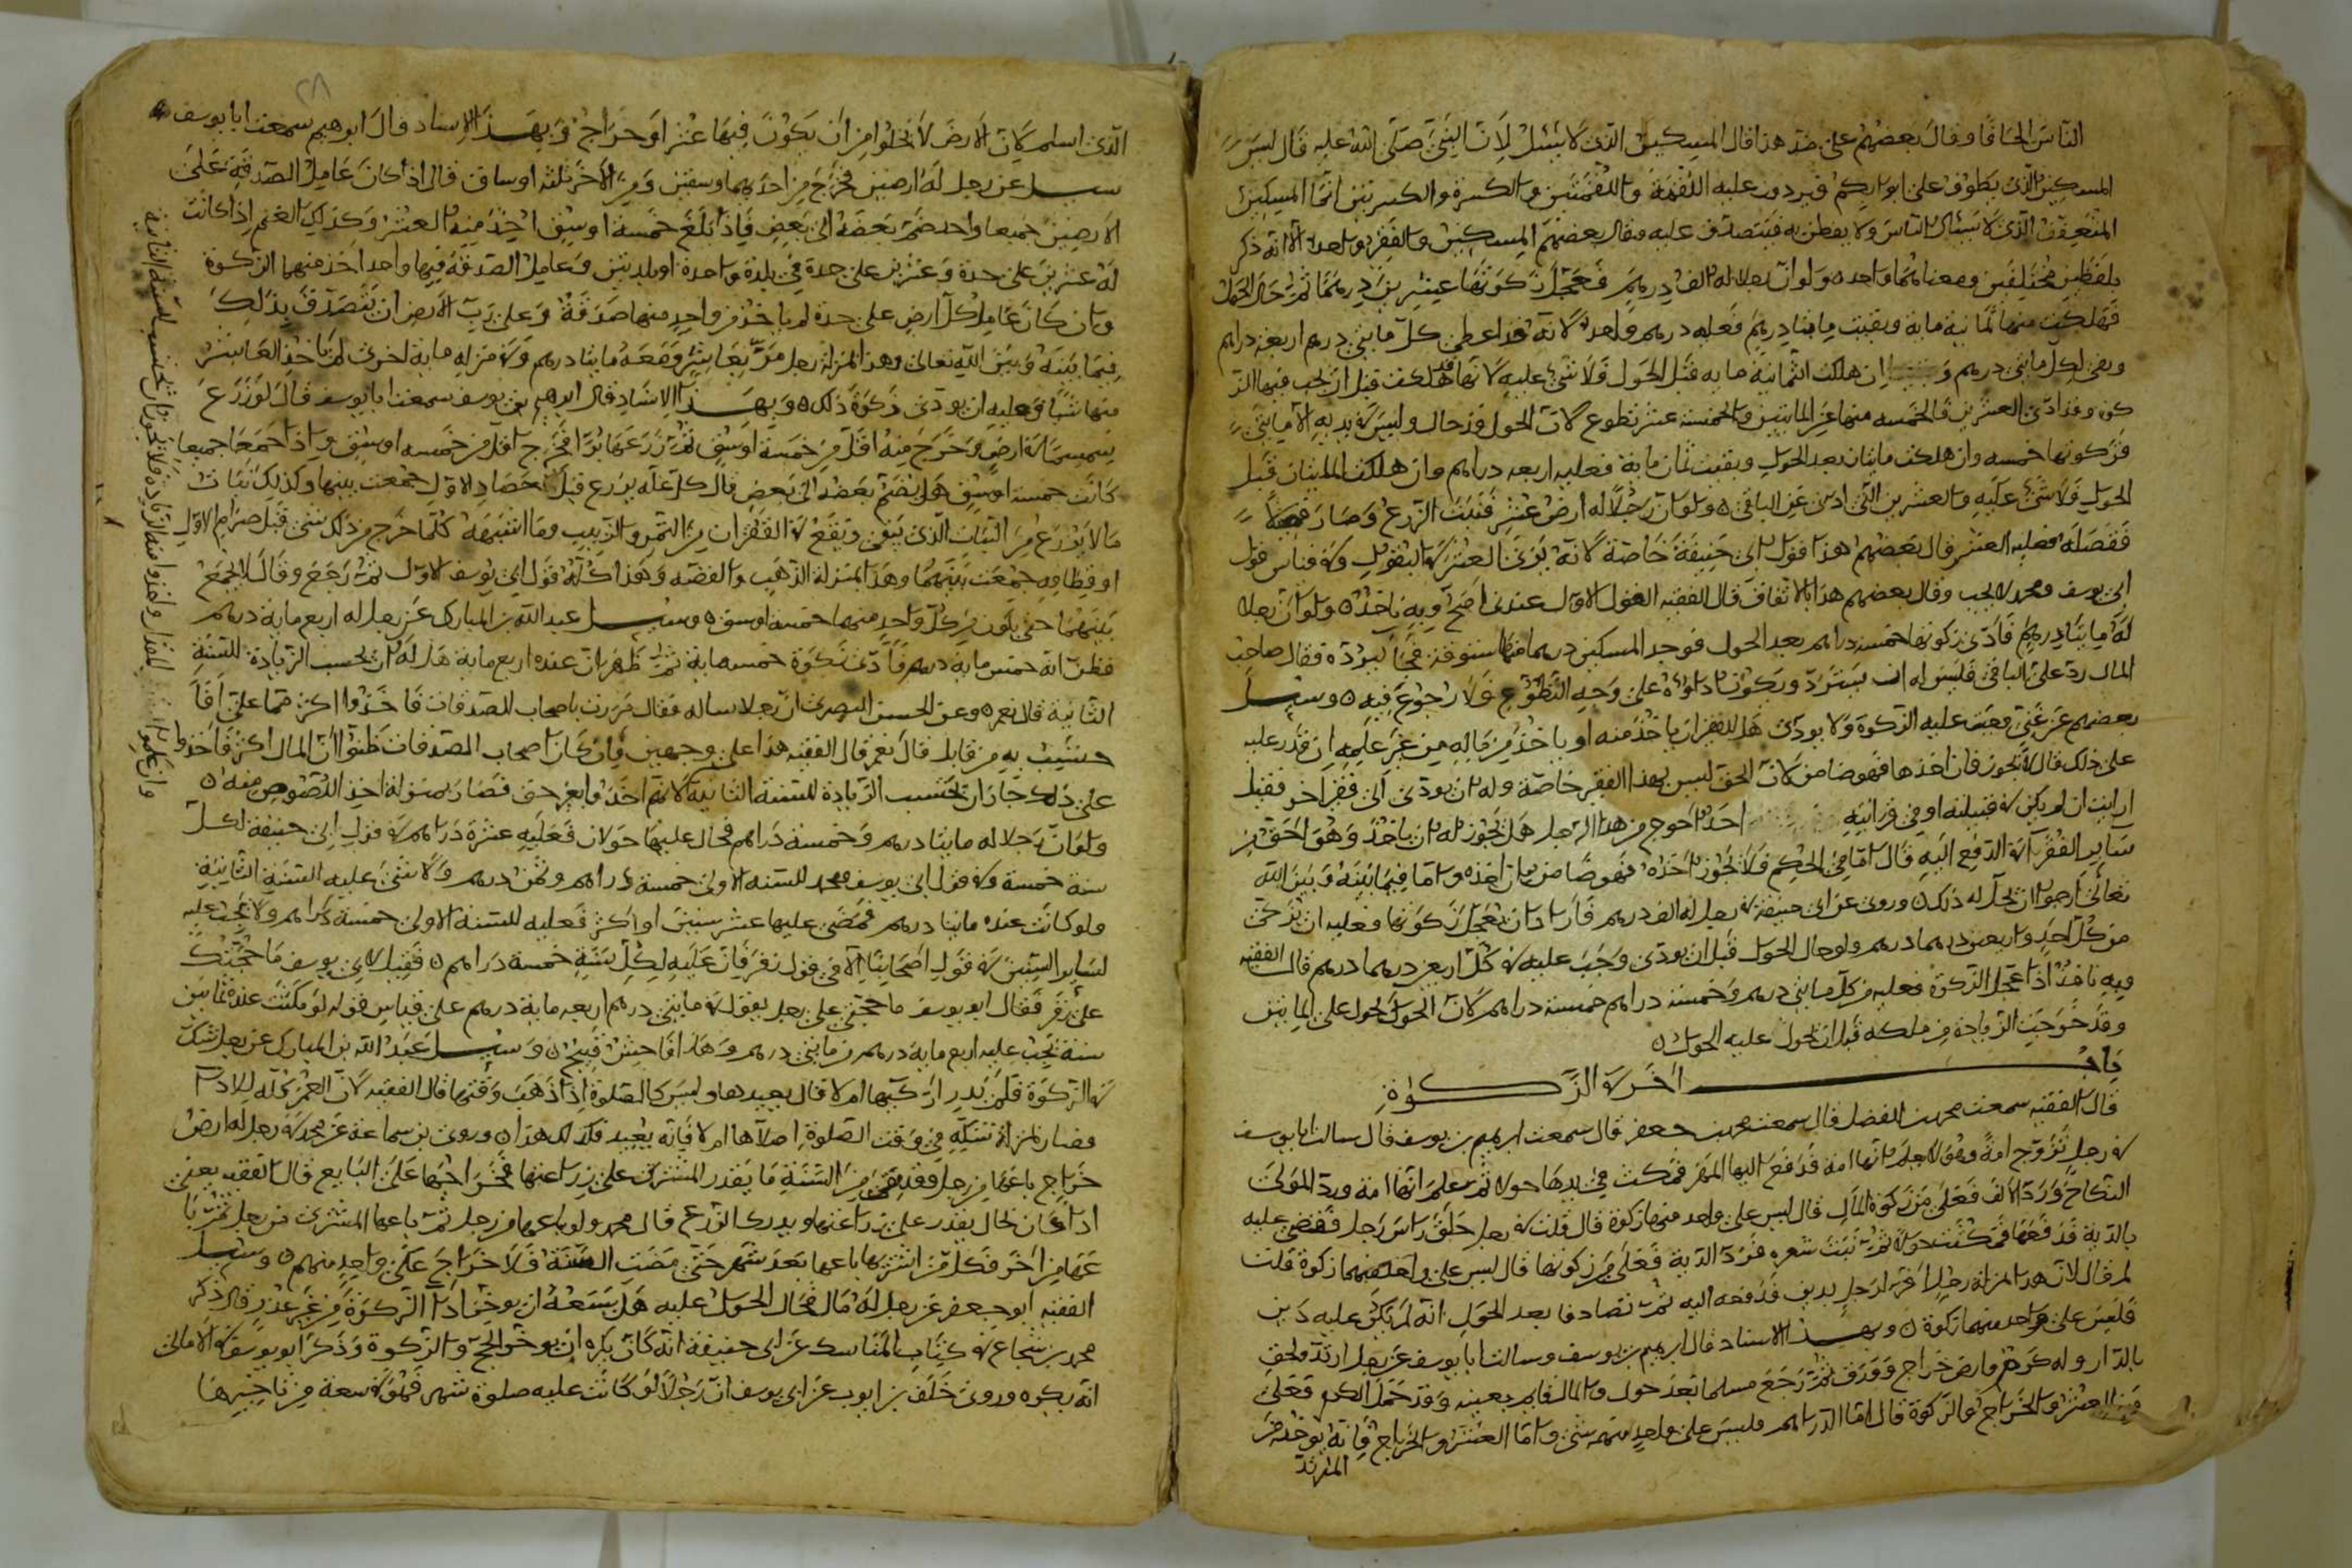 الناس الحافا وقال بعضهم على ضد هذا قال المسكين الذي لا يسئل لان النبي صلى الله عليه قال ليس
المسكين الذي يطوف على ابوابكم فيردون عليه اللقمة واللقمتين والكسرة والكسرتين انما المسكين
المتعفف الذي لا يسئال الناس ولا يفطن به فيتصدق عليه وقال بعضهم المسكين والفقير واحد الا انه ذكر
بلفظين مختلفين ومعناهما واحد ولو ان رجلا له الف درهم فعجل زكوتها عشرين درهما ثم حال الحول
فهلكت منها ثمانية ماية وبقيت مايتا درهم فعليه درهم واحد لانه قد اعطى كل مايتي درهم اربعة دراهم
وبقي لكل مايتي درهم ان هلكت الثمانية ماية قبل الحول فلا شيء عليه لانها قد هلكت قبل ان يجب فيها الز
كوة وقد ادى العشرين فالخمسه منها عن المايتين والخمسة عشر تطوع لان الحول قد حال وليس في يديه الا مايتي
فزكوتها خمسه وان هلكت مايتان بعد الحول وبقيت ثمان ماية فعليه اربعه دراهم وان هلكت المايتان قبل
الحول فلا شيء عليه والعشرين التي ادى عن الباقي ولو ان رجلا له ارض عشر فنبت الزرع وصار
فقصله فعليه العشر قال بعضهم هذا قول ابي حنيفة خاصة لانه يرى العشر في البقول وفي قياس قول
ابي يوسف ومحمد لا يجب وقال بعضهم هذا بالاتفاق قال الفقيه القول الاول عندي اصح وبه ناخذ ولو ان رجلا
له مايتا درهم فادى زكوتها خمسة دراهم بعد الحول فوجد المسكين درهما منها ستوقة فجا ليرده فقال صاحب
المال رد علي الباقي فليس له ان يسترد ويكون اداؤه على وجه التطوع فلا رجوع فيه وسئل
بعضهم عن غني وجبت عليه الزكوة ولا يودى هل للفقير ان ياخذ منه او ياخذ من ماله من غير علمه ان قدر عليه
على ذلك قال لا يجوز فان اخذها فهو ضامن لان الحق ليس لهذا الفقير خاصة وله ان يودى الى فقير اخر فقيل
ارايت ان لم يكن في قبيلته او في قرابته احد احوج من هذا الرجل هل يجوز له ان ياخذ وهو احق من
ساير الفقرا في الدفع اليه قال اما في الحكم فلا يجوز اخذه فهو ضامن ان اخذه واما فيما بينه وبين الله
تعالى ارجوا ان يحل له ذلك وروى عن ابي حنيفة في رجل له الف درهم فاراد ان يعجل زكوتها فعليه ان يزكى
من كل احد واربعين درهما درهم ولو حال الحول قبل ان يودى وجب عليه في كل اربعين درهما درهم قال الفقيه
وبه ناخذ اذا عجل الزكوة فعليه من كل مايتي درهم وخمسة دراهم خمسة دراهم لان الحول يحول على المايتين
وقد خرجت الزيادة من ملكه قبل ان يحول عليه الحول
باب اخر في الزكوة
قال الفقيه سمعت محمد بن الفضل قال سمعت محمد بن جعفر قال سمعت ابرهيم بن يوسف قال سالت ابا يوسف
في رجل تزوج امة وهو لا يعلم بانها امة فدفع اليها المهر فمكث في يدها حولا ثم علم انها امة ورد المولى
النكاح ورد الالف فعلى من زكوة المال قال ليس على واحد منهما زكوة قال قلت في رجل حلق راس رجل فقضي عليه
بالدية فدفعها فمكثت حولا ثم نبت شعره فرد الدية فعلى من زكوتها قال ليس على واحد منهما زكوة قلت
لم قال لان هذا بمنزلة رجل اقر لرجل بدين فدفعه اليه ثم تصادقا بعد الحول انه لم يكن عليه دين
فليس على واحد منهما زكوة وبهذا الاسناد قال ابرهيم بن يوسف وسالت ابا يوسف عن رجل ارتد ولحق
بالدار وله كرم وارض خراج وورق ثم رجع مسلما بعد حول والمال قايم بعينه وقد حمل الكرم فعلى
من العشر والخراج والزكوة قال اما الدراهم فليس على واحد منهم شيء واما العشر والخراج فانه يوخذ من
المرتد
٢٨
الذي اسلم لان الارض لا تخلوا من ان يكون فيها عشر او خراج وبهذا الاسناد قال ابرهيم سمعت ابا يوسف
سئل عن رجل له ارضين فخرج من احديهما وسقين ومن الاخر ثلثه اوساق قال اذا كان عامل الصدقة على
الارضين جميعا واحد ضم بعضه الى بعض فاذا بلغ خمسة اوسق اخذ منه العشر وكذلك الغنم اذا كانت
له عشرين على حدة وعشرين على حدة في بلدة واحدة او بلدتين وعامل الصدقة فيها واحد اخذ منهما الزكوة
وان كان عامل كل ارض على حدة لم ياخذ من واحد منها صدقة وعلى رب الارض ان يتصدق بذلك
فيما بينه وبين الله تعالى وهذا بمنزلة رجل مر بعاشر ومعه مايتا درهم وفي منزله ماية اخرى لم ياخذ العاشر
منها شيا وعليه ان يودى زكوة ذلك وبهذا الاسناد قال ابرهيم بن يوسف سمعت ابا يوسف قال لو زرع
سمسما في ارض وخرج منه اقل من خمسة اوسق ثم زرعها برا فخرج اقل من خمسه اوسق واذا اجمعا جميعا
كانت خمسة اوسق هل يضم بعضه الى بعض قال كل غلة يزرع قبل حصاد الاول جمعت بينها وكذلك نبات
ما لا يزرع من النبات الذي يبقى ويقع في القفزان من التمر والزبيب وما اشبهه كلما خرج من ذلك شيء قبل صرام الاول
او قطافه جمعت بينهما وهذا بمنزلة الذهب والفضه وهذا كله قول ابي يوسف الاول ثم رجع وقال لا يجمع
بينهما حتى يكون من كل واحد منهما خمسة اوسق وسئل عبد الله بن المبارك عن رجل له اربع ماية درهم
فظن انه خمس ماية درهم فادى زكوة خمسماية ثم ظهر ان عنده اربع ماية هل له ان يحسب الزيادة للسنة
الثانية قال نعم وعن الحسن البصري ان رجلا ساله فقال مررت باصحاب الصدقات فاخذوا اكثر مما علي افا
حتسب به من قابل قال نعم قال الفقيه هذا على وجهين ان كان اصحاب الصدقات ظنوا ان المال اكثر فاخذوا
على ذلك جاز ان يحتسب الزيادة للسنة الثانية لانهم اخذوا بغير حق فصار بمنزلة اخذ اللصوص منه
ولو ان رجلا له مايتا درهم وخمسة دراهم فحال عليها حولان فعليه عشرة دراهم في قول ابي حنيفة لكل
سنة خمسة وفي قول ابي يوسف ومحمد للسنة الاولى خمسة دراهم وثمن درهم ولا شيء عليه السنة الثانية
ولو كانت عنده مايتا درهم فمضى عليها عشر سنين او اكثر فعليه للسنة الاولى خمسة دراهم ولا يجب عليه
لساير السنين في قول اصحابنا الا في قول زفر فان عليه لكل سنة خمسة دراهم فقيل لابي يوسف ما حجتك
على زفر فقال ابو يوسف ما حجتي على رجل يقول في مايتي درهم اربعه ماية درهم على قياس قوله لو مكثت عنده ثمانين
سنة يجب عليه اربع ماية درهم من مايتي درهم وهذا فاحش قبيح وسئل عبد الله بن المبارك عن رجل شك
في الزكوة فلم يدر ازكيها ام لا قال يعيدها وليس كالصلوة اذا ذهب وقتها قال الفقيه لان العمر كله للادا
فصار بمنزلة شكه في وقت الصلوة اصلاها ام لا فانه يعيد فكذلك هذا وروى بن سماعة عن محمد في رجل له ارض
خراج باعها من رجل فقد بقي من السنة ما يقدر المشتري على زراعتها فخراجها على البايع قال الفقيه يعني
اذا كان بحال يقدر على زراعتها ويدرك الزرع قال محمد ولو باعها من رجل ثم باعها المشتري من رجل ثم با
عها من اخر فكل من اشتريها باعها بعد شهر حتى مضت السنة فلا خراج على واحد منهم وسئل
الفقيه ابو جعفر عن رجل له مال فحال الحول عليه هل يسعه ان يوخر ادا الزكوة من غير عذر قال ذكر
محمد بن شجاع في كتاب المناسك عن ابي حنيفة انه كان يكره ان يوخر الحج والزكوة وذكر ابو يوسف في الامالي
انه يكره وروى خلف بن ايوب عن ابي يوسف ان رجلا لو كانت عليه صلوة شهر فهو في سعة من تاخيرها